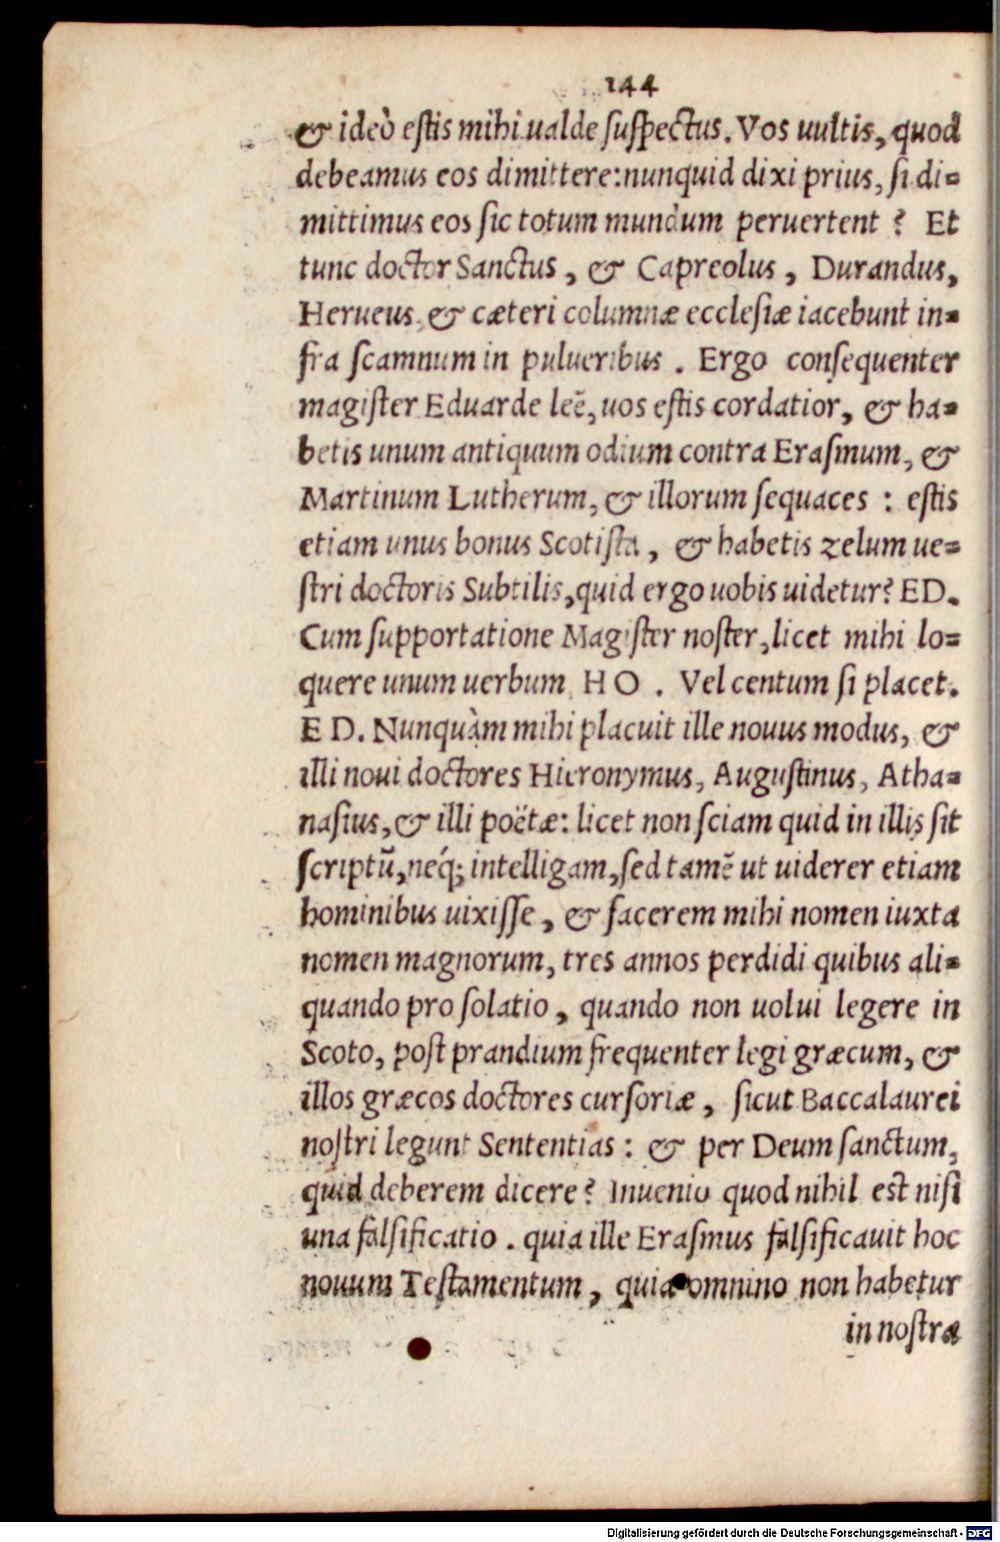 144
& ideò estis mihi ualde suspectus. Vos uultis, quod
debeamus eos dimittere: nunquid dixi prius, si di=
mittimus eos sic totum mundum peruertent ? Et
tunc doctor Sanctus , & Capreolus , Durandus,
Herueus, & cæteri columnæ ecclesiæ iacebunt in=
fra scamnum in pulueribus . Ergo consequenter
magister Eduarde leē, uos estis cordatior, & ha=
betis unum antiquum odium contra Erasmum, &
Martinum Lutherum, & illorum sequaces : estis
etiam unus bonus Scotista , & habetis zelum ue=
stri doctoris Subtilis, quid ergo uobis uidetur? ED.
Cum supportatione Magister noster, licet mihi lo=
quere unum uerbum. HO . Vel centum si placet.
ED. Nunquàm mihi placuit ille nouus modus, &
illi noui doctores Hieronymus, Augustinus, Atha=
nasius, & illi poëtæ: licet non sciam quid in illis sit
scriptū, neq́; intelligam, sed tamē ut uiderer etiam
hominibus uixisse , & facerem mihi nomen iuxta
nomen magnorum, tres annos perdidi quibus ali=
quando pro solatio , quando non uolui legere in
Scoto, post prandium frequenter legi græcum, &
illos græcos doctores cursoriæ , sicut Baccalaurei
nostri legunt Sententias : & per Deum sanctum,
quid deberem dicere? Inuenio quod nihil est nisi
una falsificatio . quia ille Erasmus falsificauit hoc
nouum Testamentum , quia omnino non habetur
in nostra
Digitalisierung gefördert durch die Deutsche Forschungsgemeinschaft - DFG